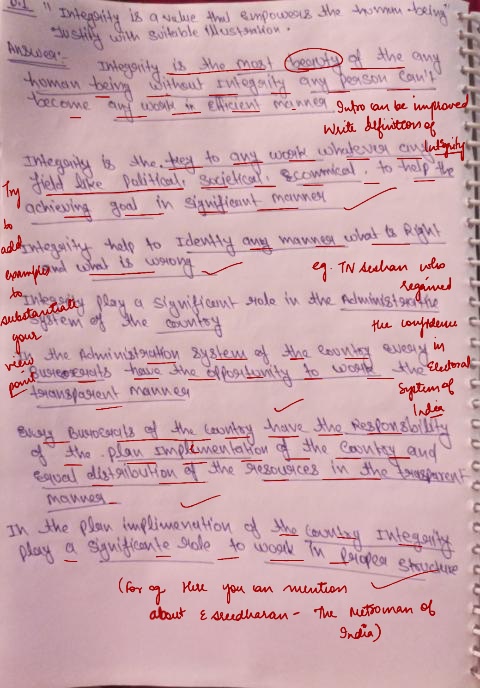 Q.1 "Integrity is a value that empowers the human-being"
Justify with suitable illustration.
Answer:-
Integrity is the most beauty of the any
human being without Integrity any person can't
become any work in efficient manner
Intro can be improved
Write definition of
Integrity
Integrity is the key to any work whatever any
field like Political, Societical, Economical, to help the
achieving goal in significant manner
Try
to
add
examples
to
substantiate
your
view
point
Integrity help to Identity any manner what is Right
and what is wrong
eg. TN Seshan who
regained
the confidence
in
Electoral
System of
India
Integrity play a significant role in the Administrative
system of the country
In the Administration system of the country every
Burocrats have the opportunity to work the
transparent manner
Every Burocrats of the country have the Responsibility
of the plan Implementation of the country and
Equal distribution of the resources in the trasparent
manner
In the plan implimenation of the country Integrity
play a significante role to work in proper structure
(For eg Here you can mention
about E sreedharan - The Metroman of
India)